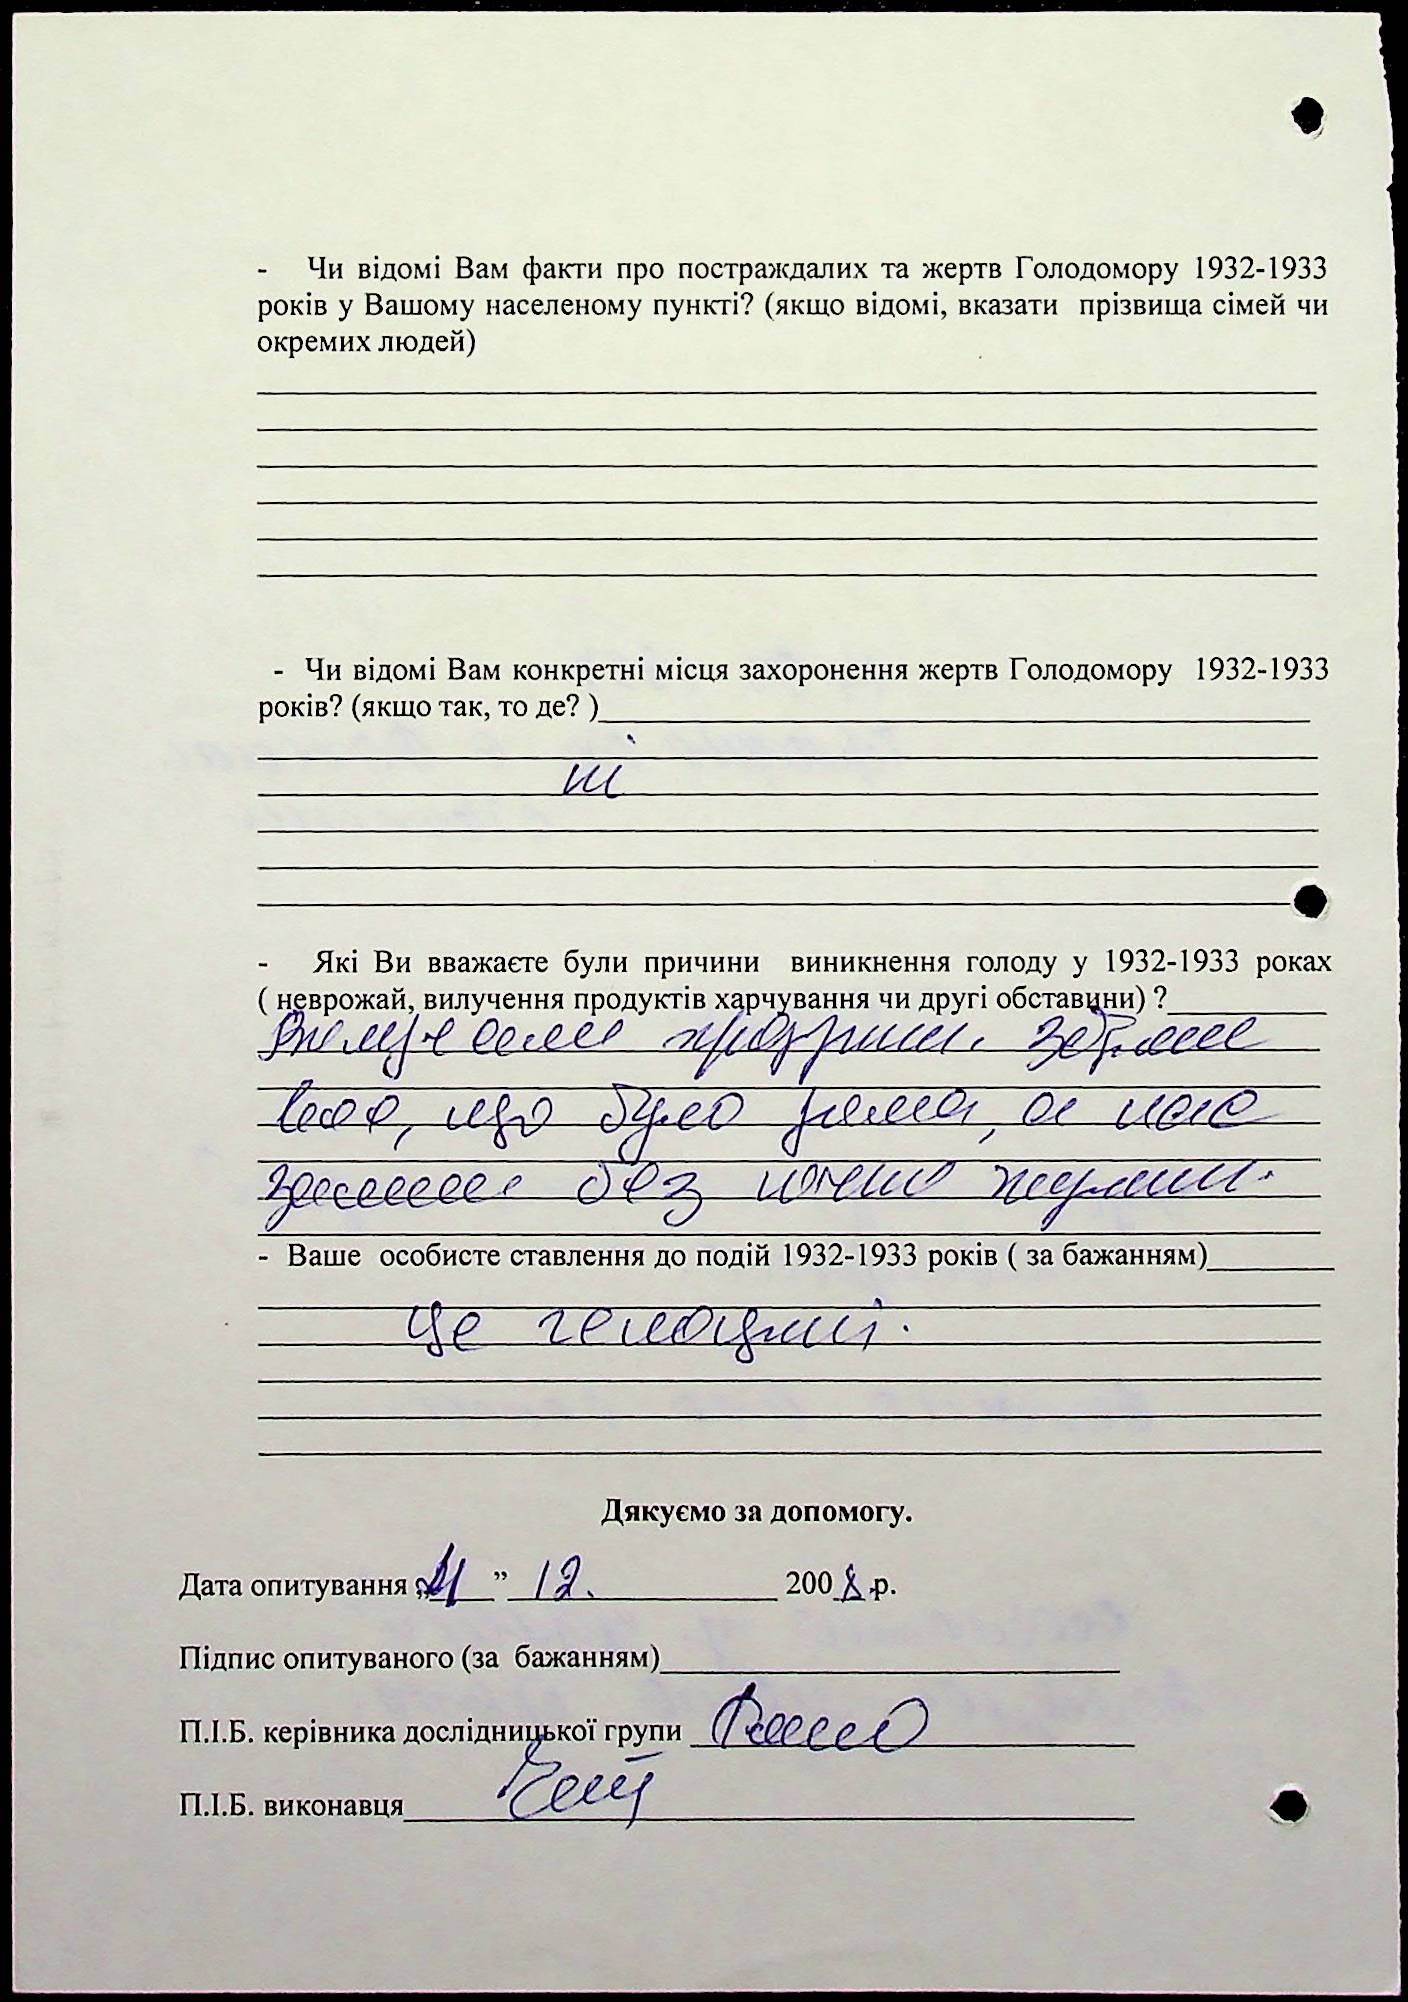 - Чи відомі Вам факти про постраждалих та жертв Голодомору 1932-1933
років у Вашому населеному пункті? (якщо відомі, вказати прізвища сімей чи
окремих людей)
- Чи відомі Вам конкретні місця захоронення жертв Голодомору 1932-1933
років? (якщо так, то де? )
ні
- Які Ви вважаєте були причини виникнення голоду у 1932-1933 роках
( неврожай, вилучення продуктів харчування чи другі обставини) ?
Вилучили продукти. Забрали
все, що було дома, а нас
залишили без
- Ваше особисте ставлення до подій 1932-1933 років ( за бажанням)
Це геноцид.
Дякуємо за допомогу.
Дата опитування „ ” 12. 2008 .р.
Підпис опитуваного (за бажанням)
П.І.Б. керівника дослідницької групи
П.І.Б. виконавця